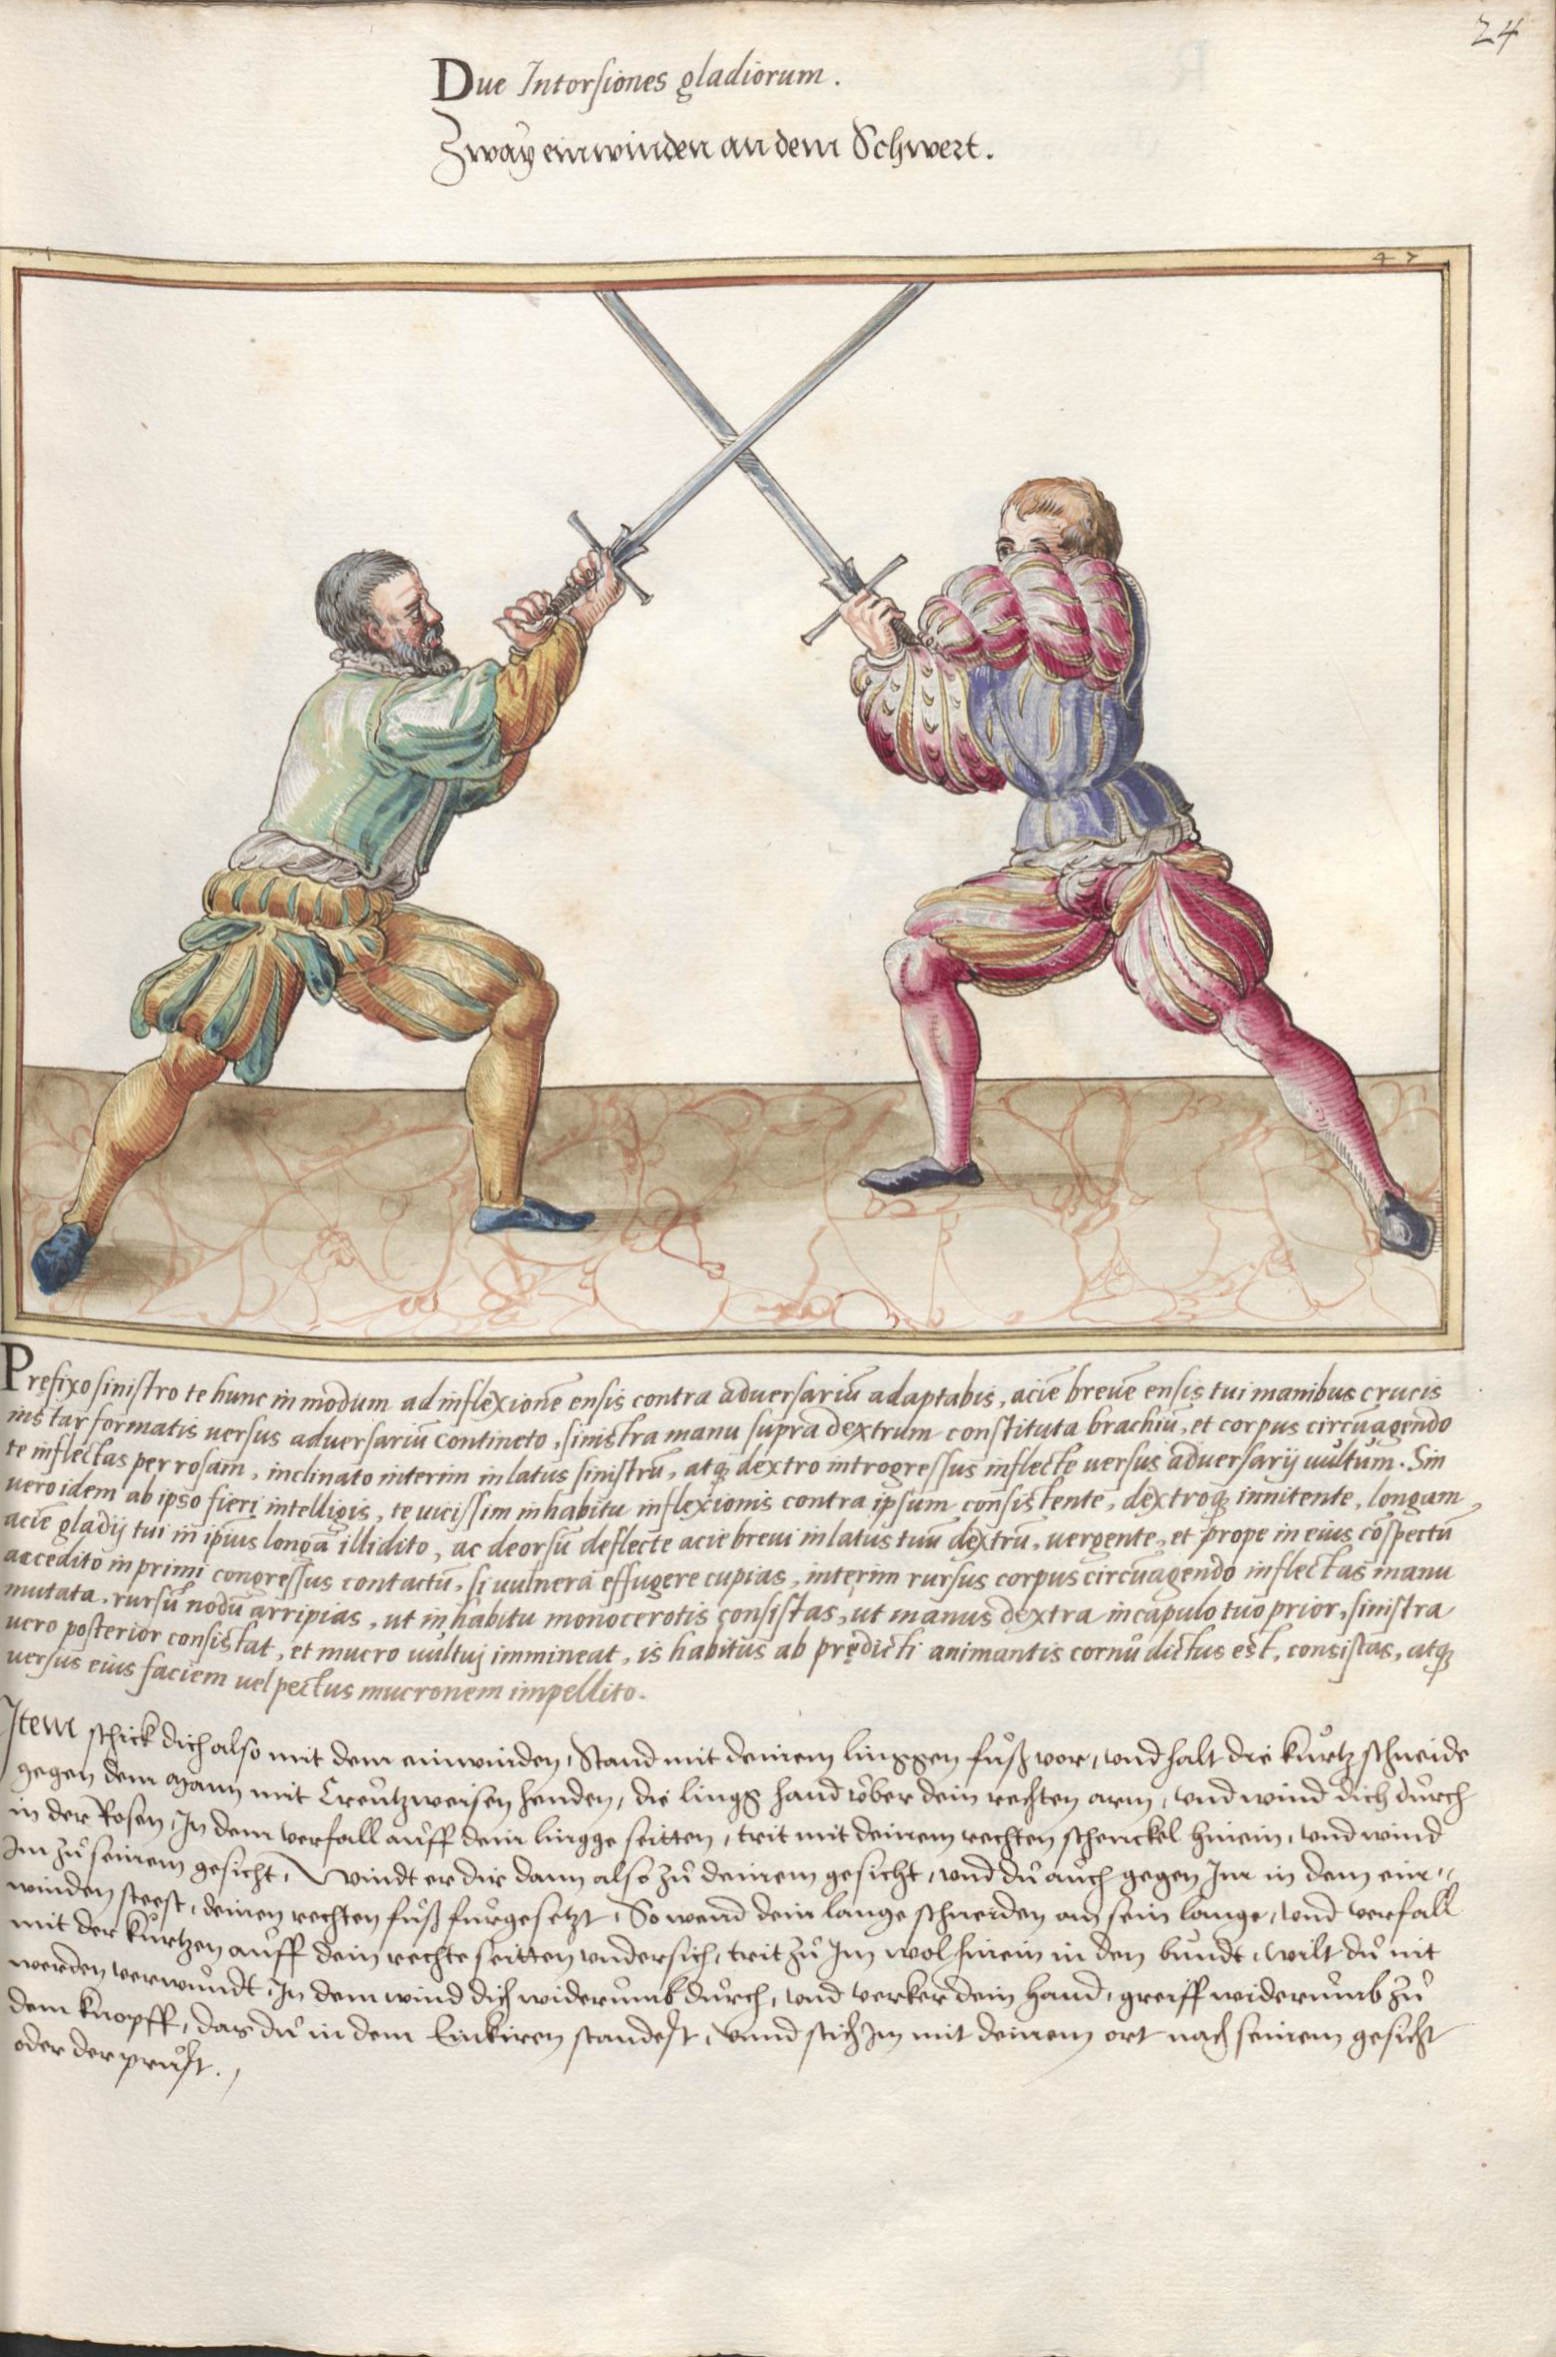 24
Due Intorsiones gladiorum.
Zway einwinden an dem Schwert.
47
Pręfixo sinistro te hunc in modum ad inflexionē ensis contra aduersariū adaptabis, aciē breuē ensis tui manibus crucis
instar formatis uersus aduersariū contineto, sinistra manu supra dextrum constituta brachiū, et corpus circūagendo
te inflectas per rosam, inclinato interim in latus sinistrū, atq; dextro introgressus inflecte uersus aduersarij uultum. Sin
uero idem ab ipso fieri intelligis, te uicissim in habitu inflexionis contra ipsum consistente, dextroq; innitente, longam
aciē gladij tui in ipius longā illidito, ac deorsū deflecte acie breui in latus tuū dextrū, uergente, et prope in eius cōspectū
accedito in primi congressus contactū, si uulnera effugere cupias, interim rursus corpus circūagendo inflectas manu
mutata, rursū nodū arripias, ut in habitu monocerotis consistas, ut manus dextra in capulo tuo prior, sinistra
uero posterior consistat, et mucro uultui immineat, is habitus ab prędicti animantis cornu dictus est, consistas, atq;
uersus eius faciem uel pectus mucronem impellito.
Item schick dich also mit dem einwinden, Stand mit deinem linggen fůß vor, vnd halt die kůrtz schneide
gegen dem mann mit Creützweisen henden, die lingg hand vber dein rechten arm, vnd wind dich důrch
in der Rosen, In dem verfall aůff dein lingge seitten, trit mit deinem rechten schenckel hinein, vnd wind
Im zů seinem gesicht, Windt er dir dann also zů deinem gesicht, vnd dů aůch gegen Im in dem ein=
winden steest, deinen rechten fůß fůrgesetzt, So wend dein lange schneiden an sein lange, vnd verfall
mit der kůrtzen aůff dein rechte seitten vndersich, trit zů Im wol hinein in den bůndt, wilt dů nit
werden verwůndt, In dem wind dich widerůmb důrch, vnd verker dein hand, greiff widerůmb zů
dem knopff, das dů in dem Einkiren standest, vnnd stich Im mit deinem ort nach seinem gesicht
oder der průst.